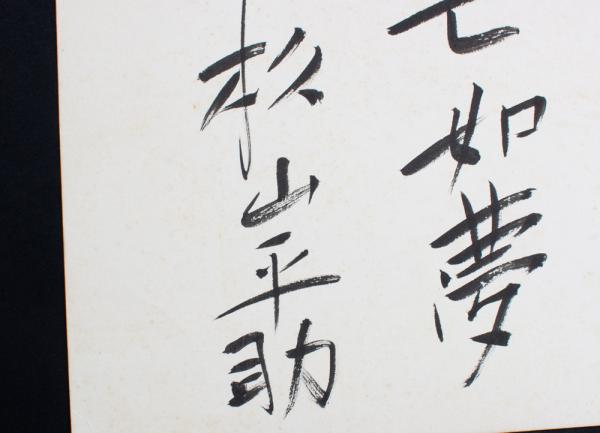 如夢
杉山平助